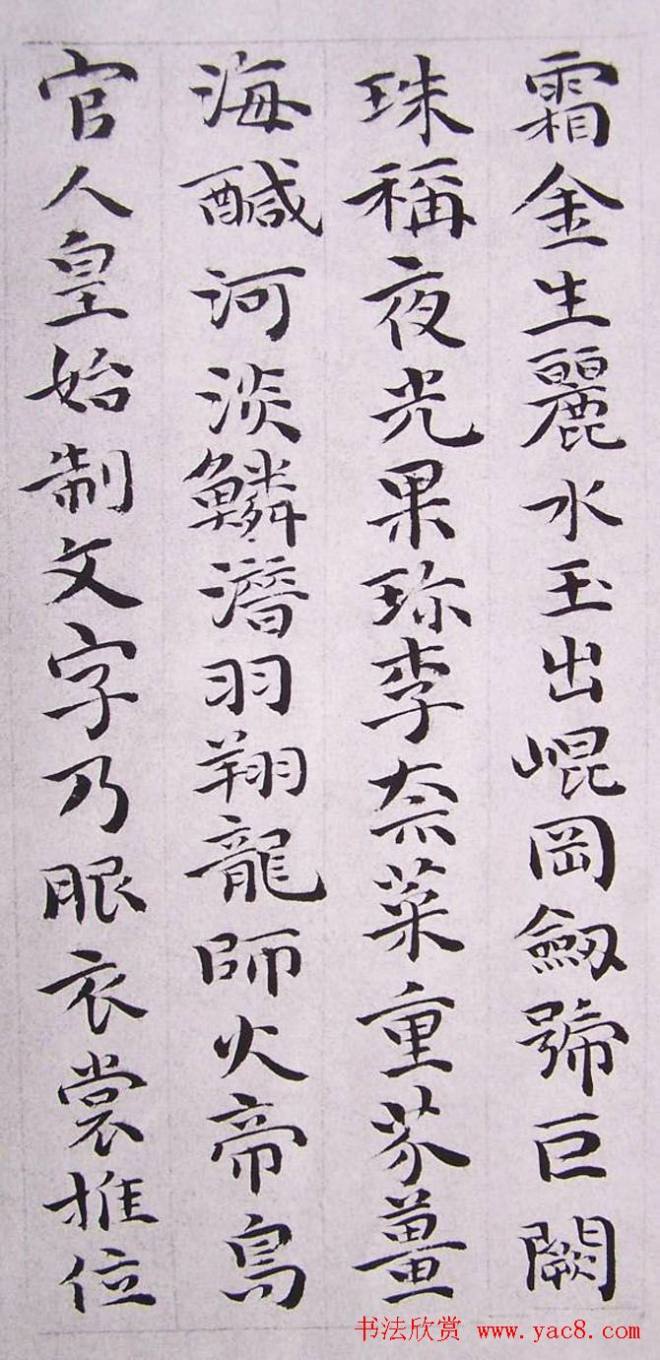 霜金生麗水玉出崐岡劒號巨闕
珠稱夜光果珎李柰菜重芥薑
海醎河淡鱗潛羽翔龍師火帝鳥
官人皇始制文字乃服衣裳推位
书法欣赏 www.yac8.com